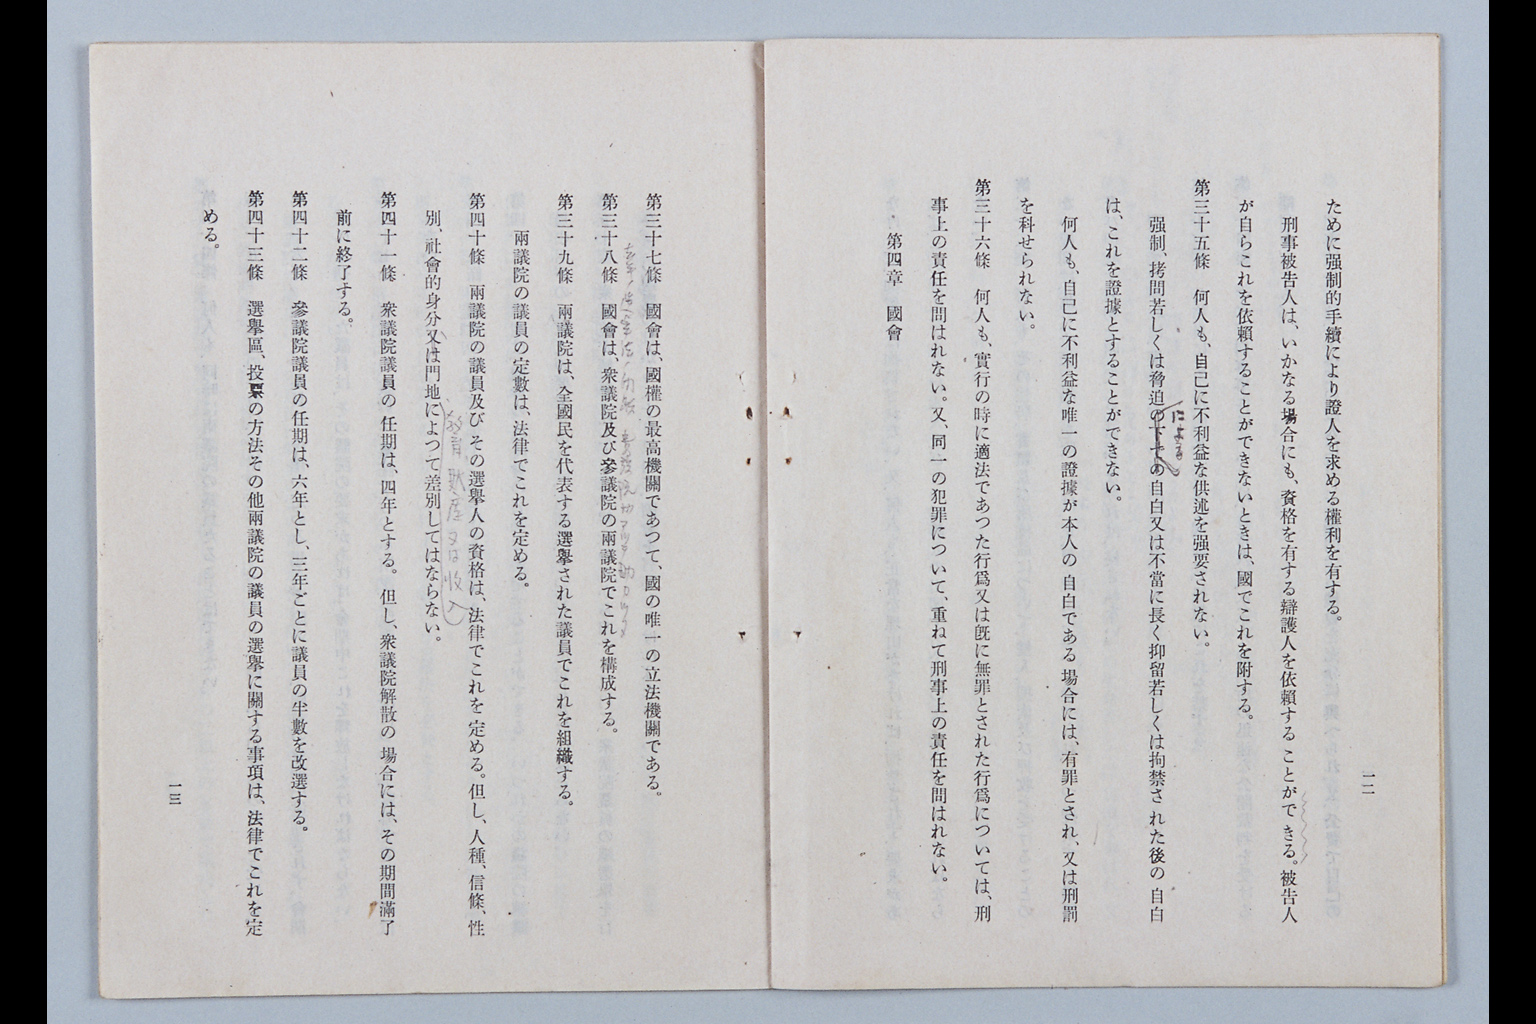 ために强制的手續により證人を求める權利を有する。
刑事被告人は、いかなる場合にも、資格を有する辯護人を依賴することができる。被告人
が自らこれを依賴することができないときは、國でこれを附する。
第三十五條　何人も、自己に不利益な供述を强要されない。
强制、拷問若しくは脅迫の下での自白又は不當に長く抑留若しくは拘禁された後の自白
による
は、これを證據とすることができない。
何人も、自己に不利益な唯一の證據が本人の自白である場合には、有罪とされ、又は刑罰
を科せられない。
第三十六條　何人も、實行の時に適法であつた行爲又は旣に無罪とされた行爲については、刑
事上の責任を問はれない。又、同一の犯罪について、重ねて刑事上の責任を問はれない。
第四章　國會
一二
第三十七條　國會は、國權の最高機關であつて、國の唯一の立法機關である。
第三十八條　國會は、衆議院及び參議院の兩議院でこれを構成する。
第三十九條　兩議院は、全國民を代表する選擧された議員でこれを組織する。
兩議院の議員の定數は、法律でこれを定める。
第四十條　兩議院の議員及びその選擧人の資格は、法律でこれを定める。但し、人種、信條、性
別、社會的身分又は門地によつて差別してはならない。
教育、財産又は收入
第四十一條　衆議院議員の任期は、四年とする。但し、衆議院解散の場合には、その期間滿了
前に終了する。
第四十二條　參議院議員の任期は、六年とし、三年ごとに議員の半數を改選する。
第四十三條　選擧區、投票の方法その他兩議院の議員の選擧に關する事項は、法律でこれを定
める。
一三